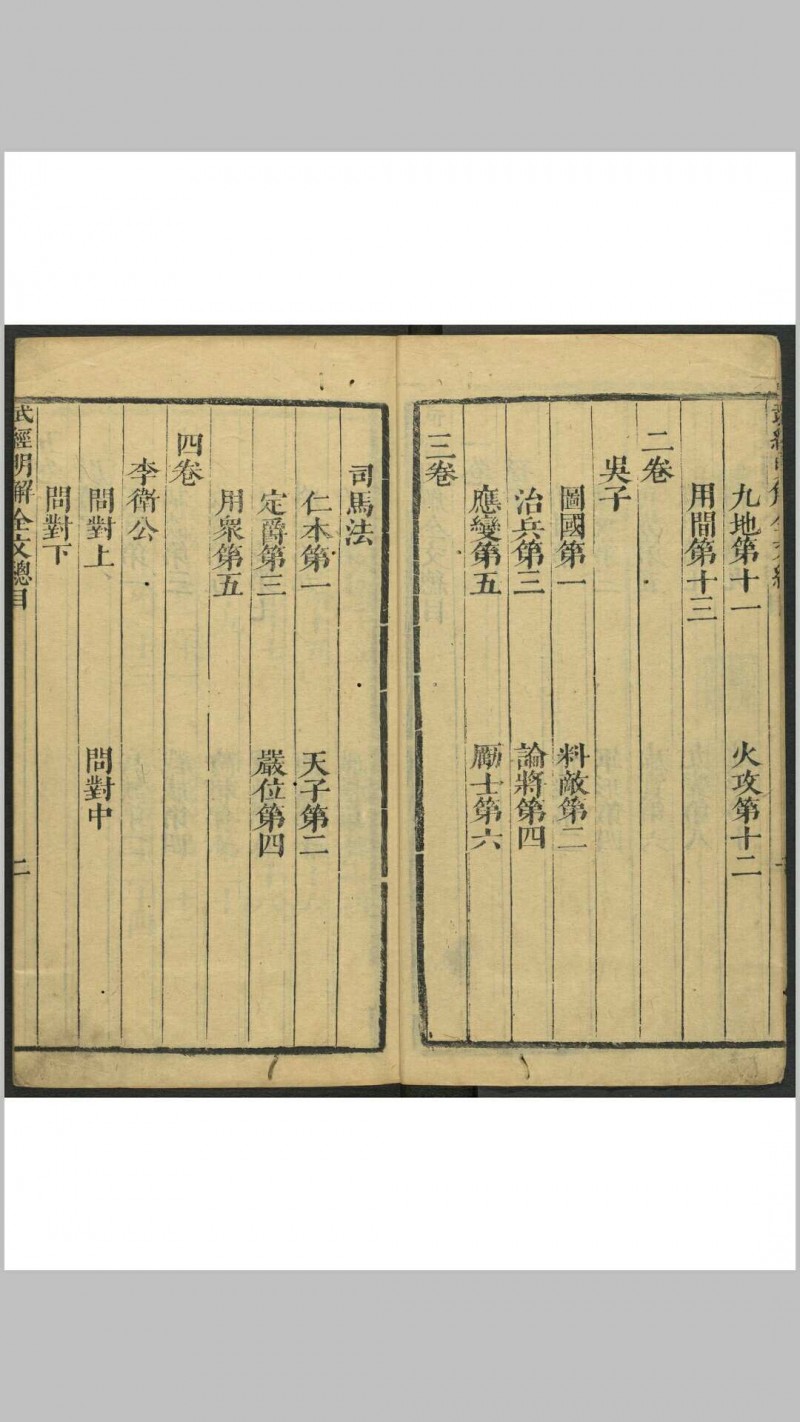 九地第十一　火攻第十二
用間第十三
二卷
吳子
圖國第一　料敵第二
治兵第三　論將第四
應變第五　勵士第六
三卷
司馬法
仁本第一　天子第二
定爵第三　嚴位第四
用衆第五
四卷
李衛公
問對上　問對中
問對下
武經明解全文總目　二